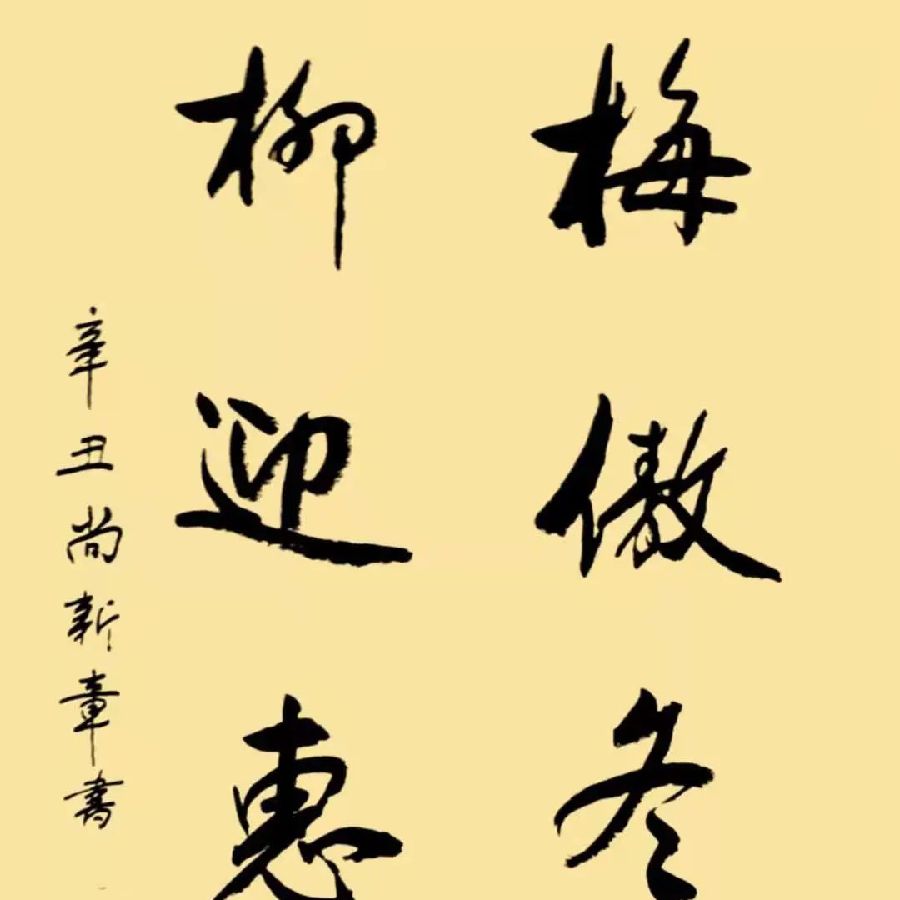 梅傲冬
柳迎惠
辛丑尚新章書